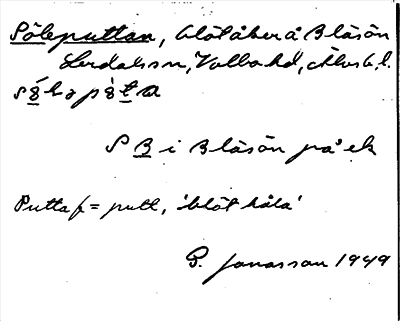 Söleputtan, blöt åker å Blåsön
Lerdalssn, Valbo hd, Älvsb. l.
S B i Blåsön på ek
Putta f = putt, 'blöt håla'
G. Jonasson 1949